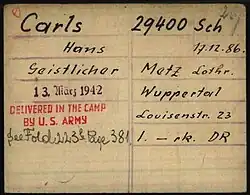 Carls 29400 Sch
Hans 17.12.86.
Geistlicher Metz Lothr.
13. März 1942 Wuppertal
DELIVERED IN THE CAMP
BY U.S. ARMY
Louisenstr. 23
See Fold. 223 Page 381
1. - rk. DR